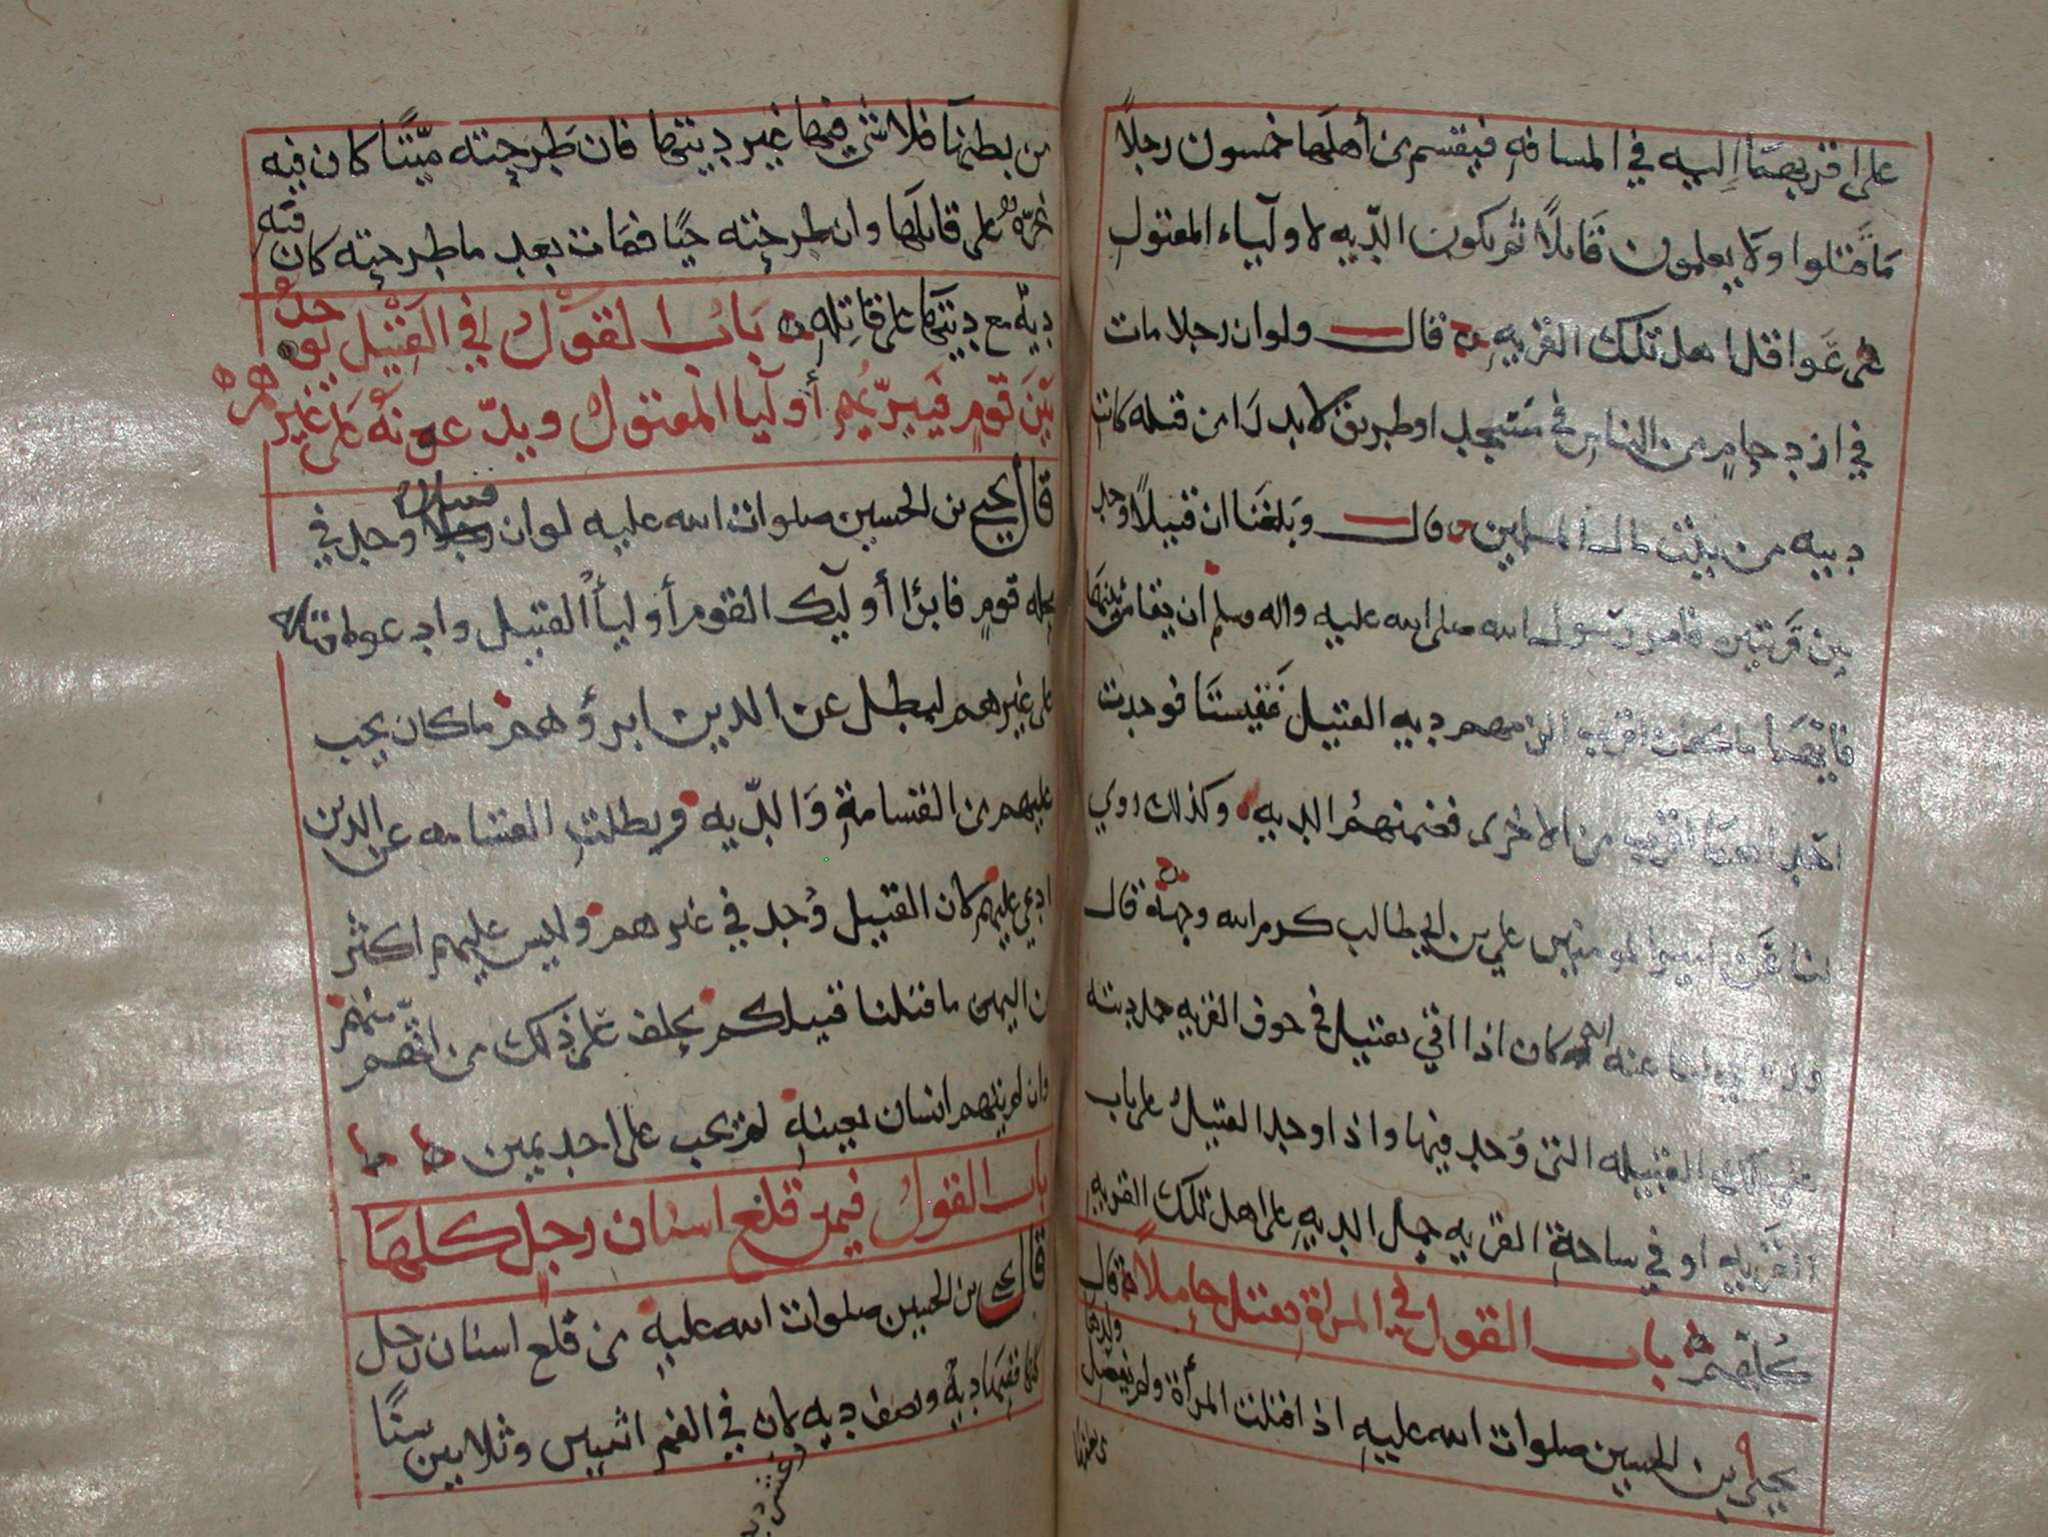 على اقربهما اليه في المسافه فيقسم من أهلها خمسون رجلًا
ما قتلوا ولا يعلمون قاتلًا ثم يكون الديه لاوليآء المقتول
على عواقل اهل تلك القريه قال ولو ان رجلا مات
في ازدحام من الناس في مسجد او طريق لا يدرا من قتله كانت
ديته من بيت مال المسلمين قال وبلغنا ان قتيلًا وجد
بين قريتين فامر رسول الله صلى الله عليه واله وسلم ان يقاس بينهما
فايهما كانت اقرب الزمهم ديه القتيل فقيستا فوجدت
احداهما اقرب من الاخرى فضمنهم الديه وكذلك روي
لنا عن امير المومنين علي بن ابي طالب كرم الله وجهه قال
عنه انه كان اذا اتي بقتيل في جوف القريه حمل ديته
على تلك القبيله التي وُجد فيها واذا وجد القتيل على باب
القريه او في ساحة القريه جعل الديه على اهل تلك القريه
كلهم باب القول في المراة تقتل حاملًا قال
يحيى بن الحسين صلوات الله عليه اذا قتلت المرأة ولم ينفصل ولدها
من بطنها فلا شي فيها غير ديتها فان طرحته ميّتًا كان فيه
غرّه على قاتلها وان طرحته حيًا فمات بعد ما طرحته كان فيه
ديه مع ديتها على قاتله باب القول في القتيل يوجد
بين قوم فيبريهم أوليا المقتول ويدّعونه على غيرهم
قال يحيى بن الحسين صلوات الله عليه لو ان قتيلا وجد في
محله قوم فابرا أوليك القوم أوليأ القتيل وادعوا قتله
على غيرهم لبطل عن الذين ابرؤهم ما كان يجب
عليهم من القسامة والدّيه وبطلت القسامه عن الذين
ادعي عليهم لان القتيل وُجد في غيرهم وليس عليهم اكثر
من اليمين ما قتلنا قتيلكم يحلف على ذلك من اتهم منهم
وان لم يتهم انسان بعينه لم يجب على احد يمين
باب القول فيمن قلع اسنان رجل كلها
قال يحيى بن الحسين صلوات الله عليه من قلع اسنان رجل
كلها ففيها دية ونصف ديه لان في الفم اثنين وثلاثين سنًا